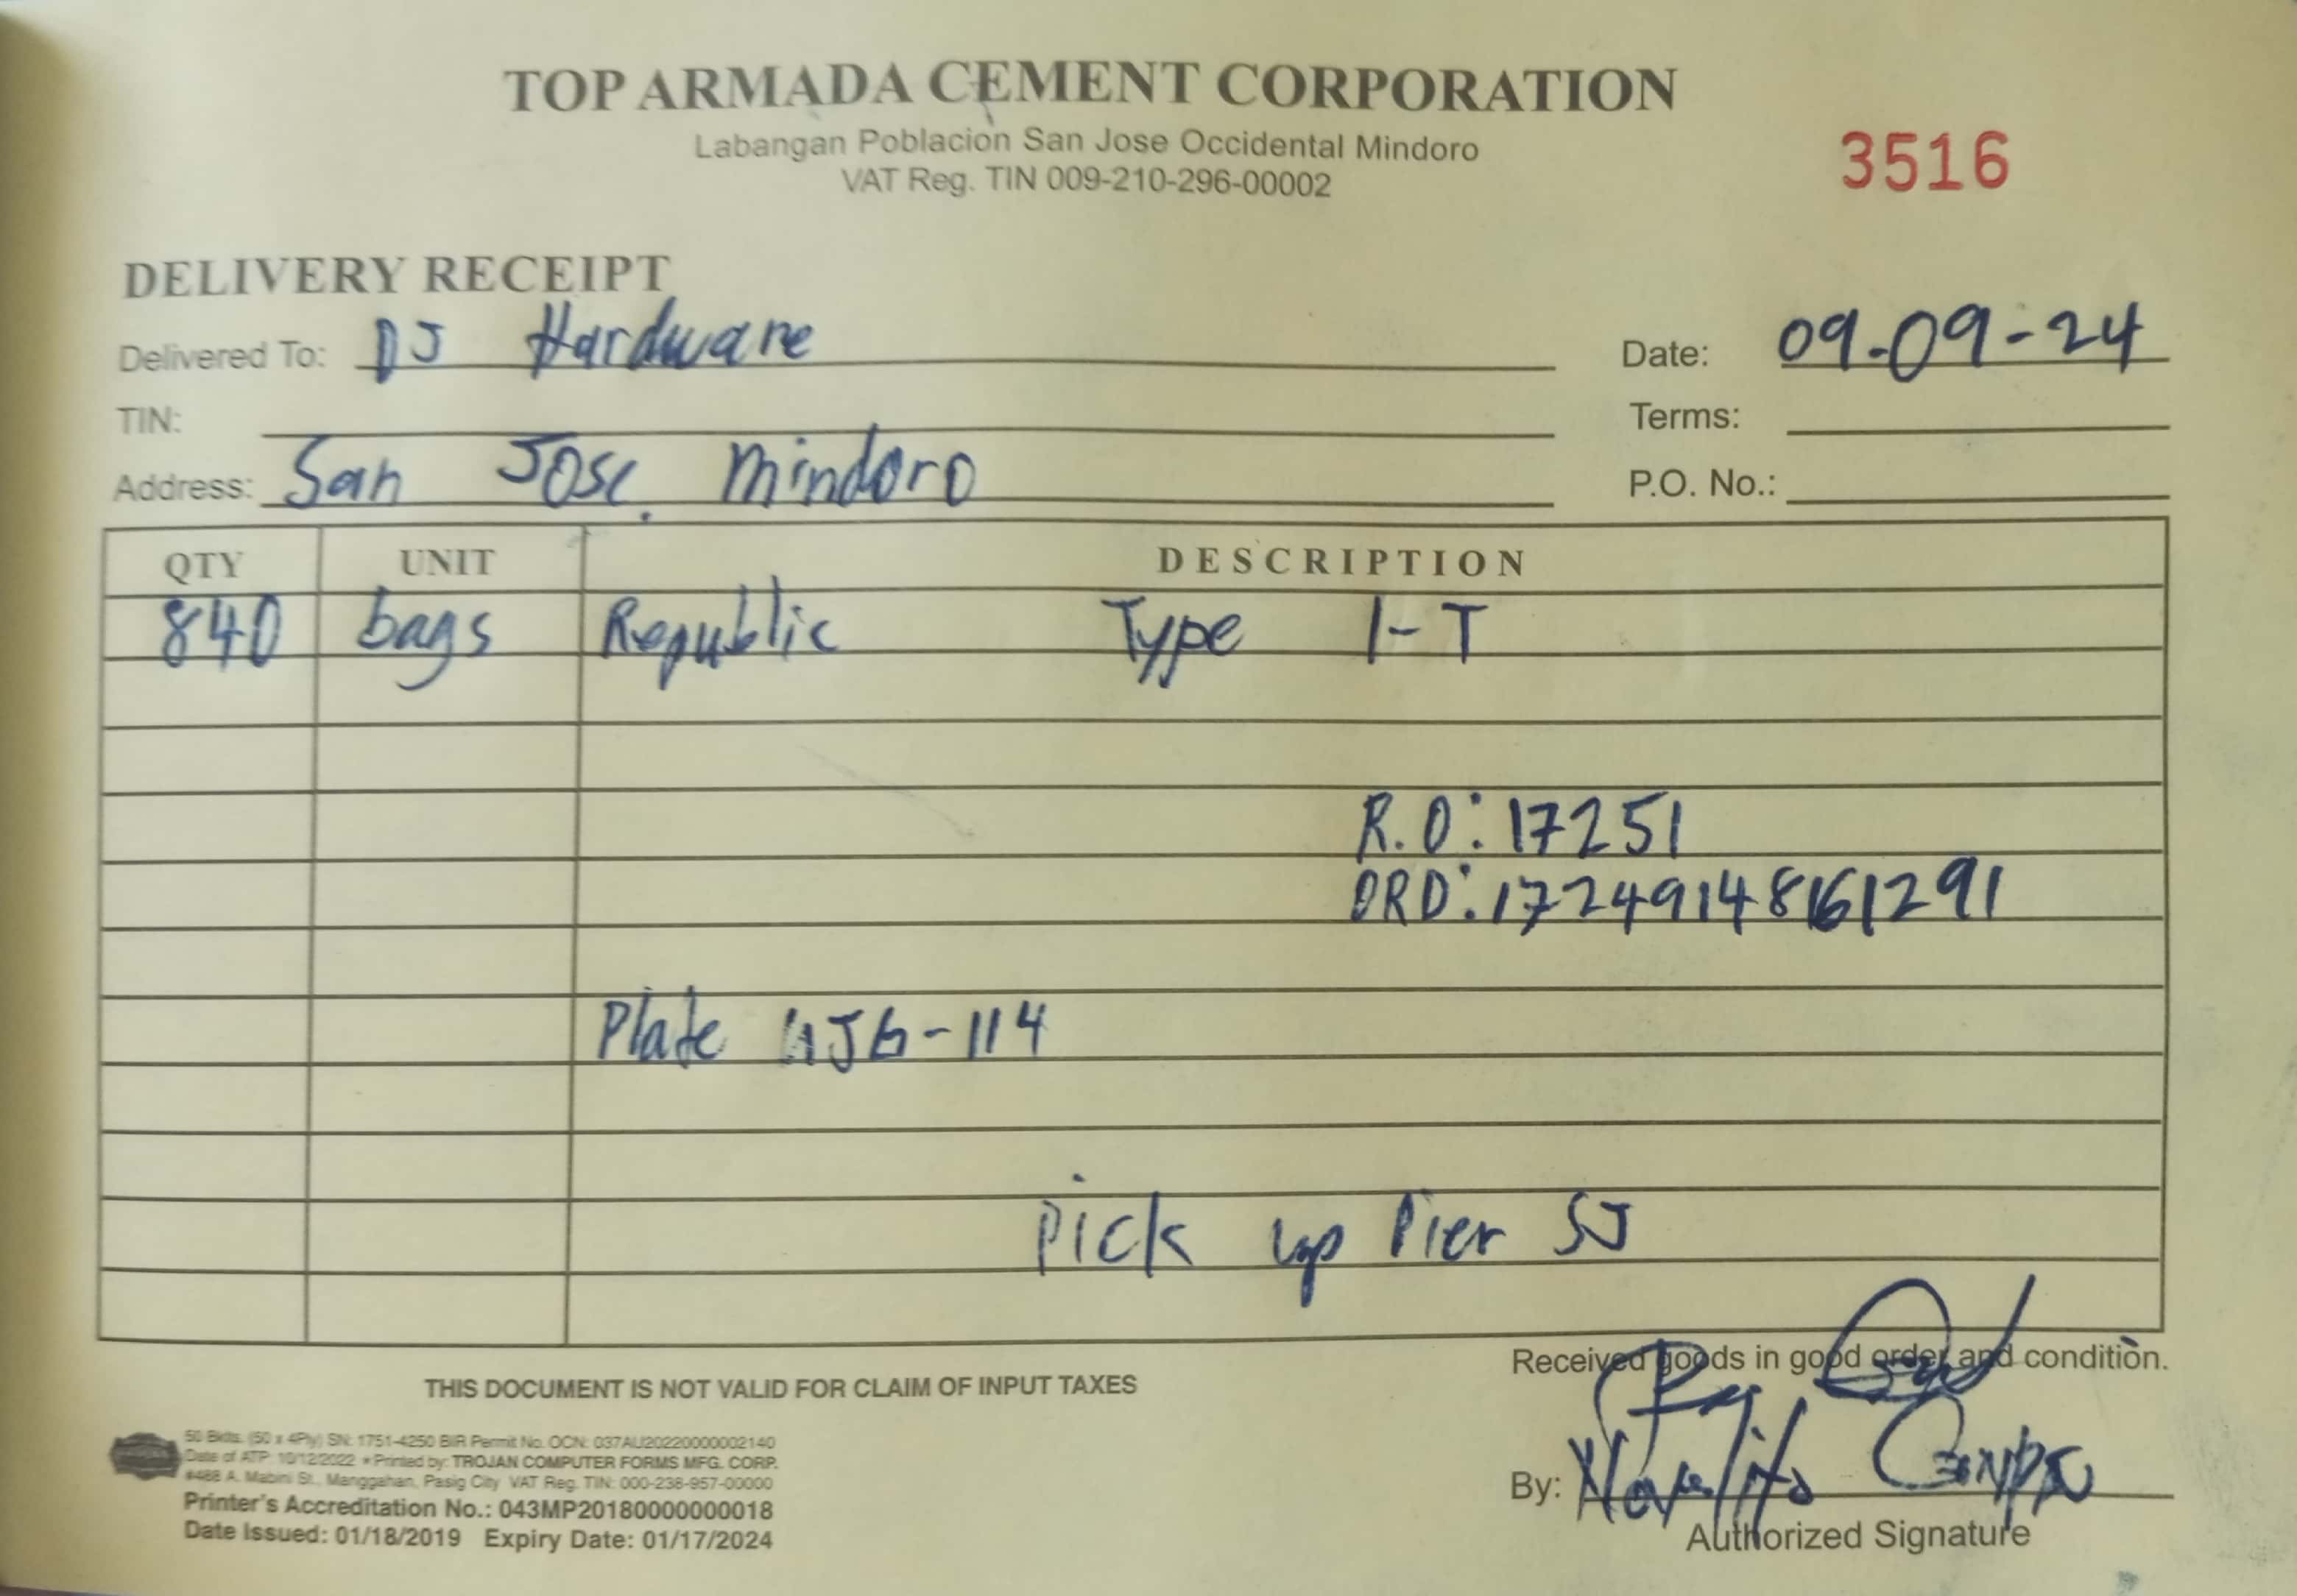 TOP ARMADA CEMENT CORPORATION
Labangan Poblacion San Jose Occidental Mindoro
VAT Reg. TIN 009-210-296-00002
3516
DELIVERY RECEIPT
Delivered To: DJ Hardware
Date: 09-09-24
TIN:
Terms:
Address: San Jose. Mindoro
P.O. No.:
QTY UNIT DESCRIPTION
840 bags Republic Type 1-T
R.O: 17251
ORD: 1724914816 1291
Plate
pick up Pier SJ
Received goods in good order and condition.
THIS DOCUMENT IS NOT VALID FOR CLAIM OF INPUT TAXES
50 Bklts. (50 x 4Ply) SN: 1751-4250 BIR Permit No. OCN: 037AU20220000002140
Date of ATP: 10/12/2022 • Printed by: TROJAN COMPUTER FORMS MFG. CORP.
#488 A. Mabini St., Manggahan, Pasig City VAT Reg. TIN: 000-238-957-00000
Printer's Accreditation No.: 043MP20180000000018
Date Issued: 01/18/2019 Expiry Date: 01/17/2024
By:
Authorized Signature